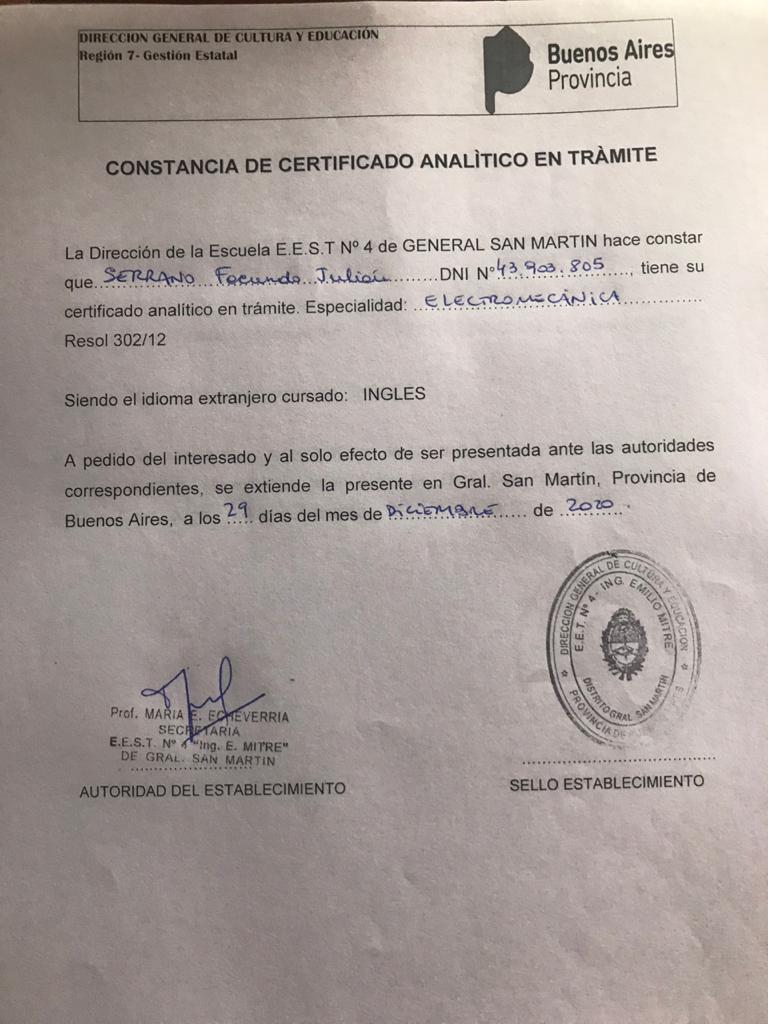 DIRECCION GENERAL DE CULTURA Y EDUCACIÓN
Región 7- Gestión Estatal
Buenos Aires
Provincia
CONSTANCIA DE CERTIFICADO ANALÌTICO EN TRÀMITE
La Dirección de la Escuela E.E.S.T Nº 4 de GENERAL SAN MARTIN hace constar
que SERRANO Facundo Julián DNI Nº 43.903.805, tiene su
certificado analítico en trámite. Especialidad: ELECTROMECÁNICA
Resol 302/12
Siendo el idioma extranjero cursado: INGLES
A pedido del interesado y al solo efecto de ser presentada ante las autoridades
correspondientes, se extiende la presente en Gral. San Martín, Provincia de
Buenos Aires, a los 29 días del mes de DICIEMBRE de 2020.
Prof. MARIA E. ECHEVERRIA
SECRETARIA
E.E.S.T. Nº 4 "Ing. E. MITRE"
DE GRAL. SAN MARTIN
AUTORIDAD DEL ESTABLECIMIENTO
DIRECCION GENERAL DE CULTURA Y EDUCACION
E.E.T. Nº 4 - ING. EMILIO MITRE
DISTRITO GRAL. SAN MARTIN
PROVINCIA DE
SELLO ESTABLECIMIENTO